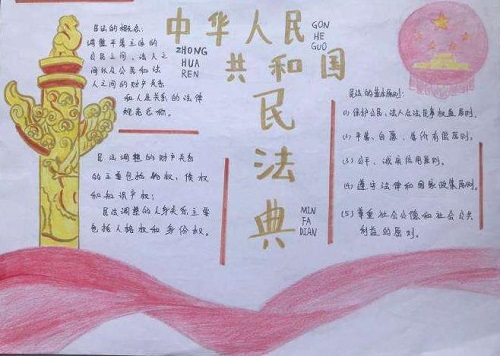 中华人民
共和国
民法典
ZHONG
HUA
REN
GON
HE
GUO
MIN
FA
DIAN
民法的概念:
调整平等主体的
自然人之间、法人之
间、公民和法
人之间的财产关系
和人身关系的法律
规范总称。
民法调整的财产关系
的主要包括物权,债权
和知识产权;
民法调整的人身关系主要
包括人格权和身份权。
民法的基本原则:
(1)保护公民、法人合法民事权益原则.
(2)平等、自愿、等价有偿原则.
(3)公平、诚实信用原则.
(4)遵守法律和国家政策原则.
(5)尊重社会公德和社会公共
利益的原则.